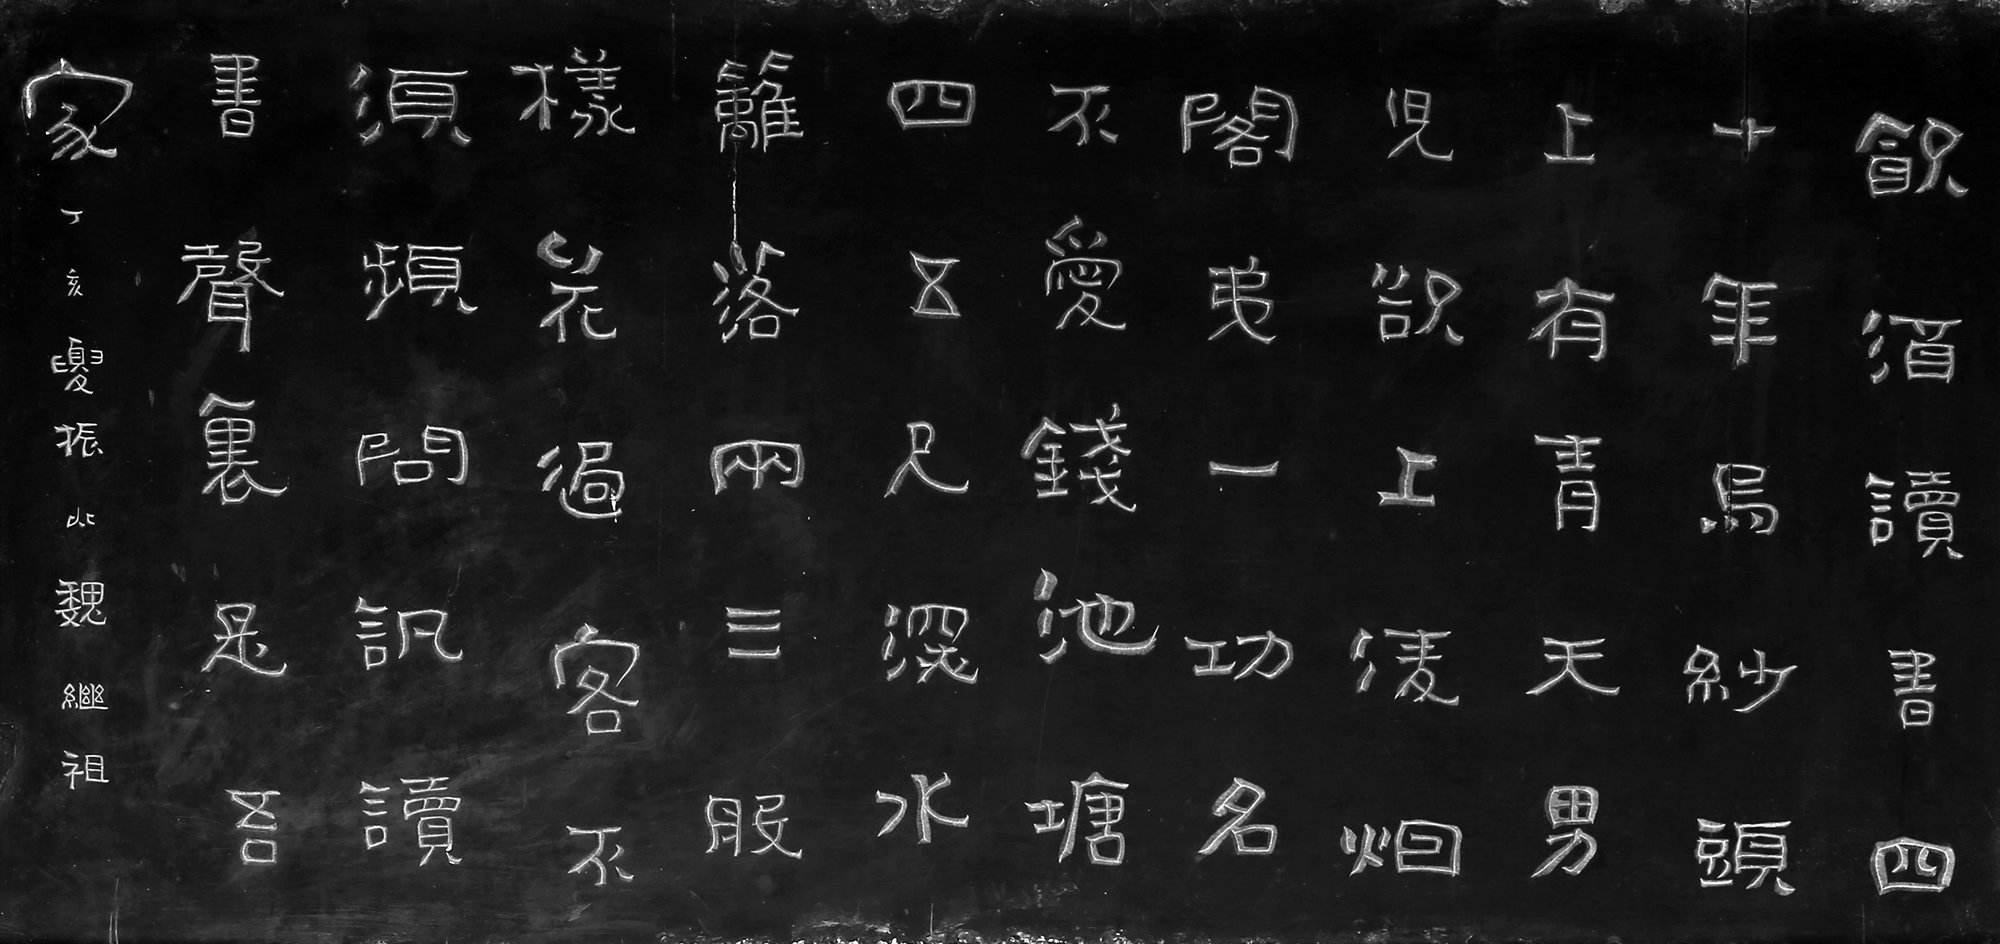 飲酒讀書四
十年烏紗頭
上有青天男
兒欲上淩烟
閣弟一功名
不愛錢池塘
四五尺深水
籬落兩三般
樣花過客不
須頻問訊讀
書聲裏是吾
家 丁亥夏振北魏繼祖